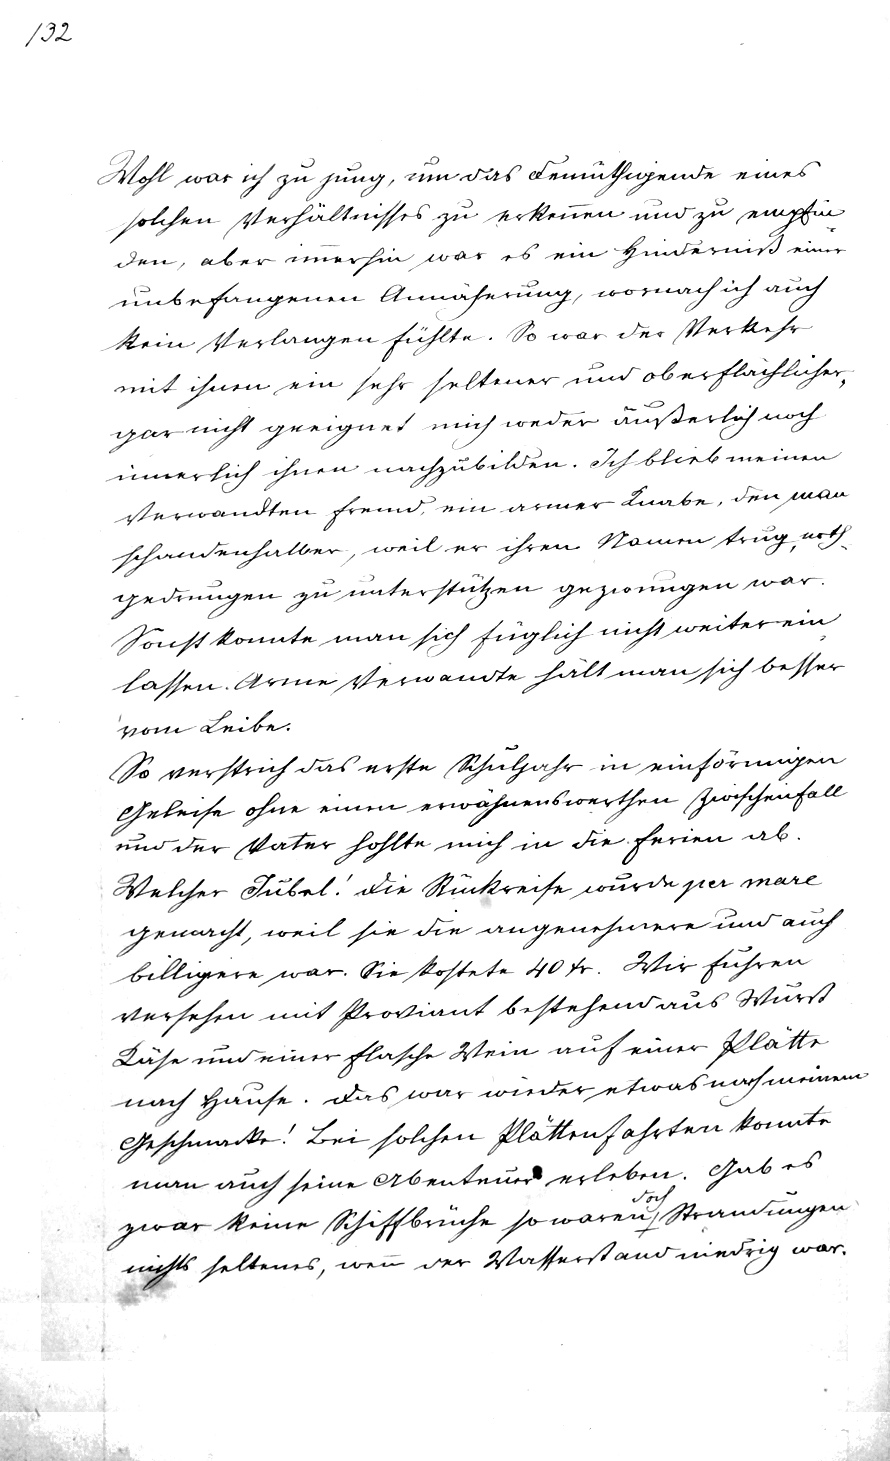 132
Wohl war ich zu jung, um das Demüthigende eines
solchen Verhältnisses zu erkennen und zu empfin
den, aber immerhin war es ein Hinderniß einer
unbefangenen Annäherung, wornach ich auch
kein Verlangen fühlte. So war der Verkehr
mit ihnen ein sehr seltener und oberflächlicher,
gar nicht geeignet mich weder äußerlich noch
innerlich ihnen nachzubilden. Ich blieb meinen
Verwandten fremd, ein armer Knabe, den man
schandenhalber, weil er ihren Namen trug, noth-
gedrungen zu unterstützen gezwungen war.
Sonst konnte man sich füglich nicht weiter ein
lassen. Arme Verwandte hält man sich besser
vom Leibe.
So verstrich das erste Schuljahr in einförmigen
Geleise ohne einen erwähnenswerthen Zwischenfall
und der Vater hohlte mich in die Ferien ab.
Welcher Jubel! Die Rückreise wurde per mare
gemacht, weil sie die angenehmere und auch
billigere war. Sie kostete 40 kr. Wir fuhren
versehen mit Proviant bestehend aus Wurst
Käse und einer Flasche Wein auf einer Plätte
nach Hause. Das war wieder etwas nach meinem
Geschmacke! Bei solchen Plättenfahrten konnte
man auch seine Abenteuer erleben. Gab es
zwar keine Schiffbrüche so waren doch Strandungen
nichts seltenes, wenn der Wasserstand niedrig war.